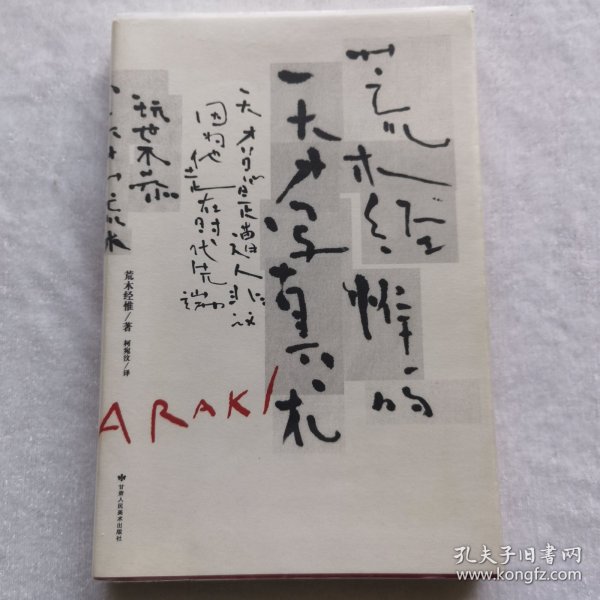 荒木经惟的
天才写真术
天才总是遭人非议
因为他走在时代先端
玩世不恭
荒木经惟/著
柯宛汶/译
ARAKI
甘肃人民美术出版社
孔夫子旧书网
www.kongfz.com